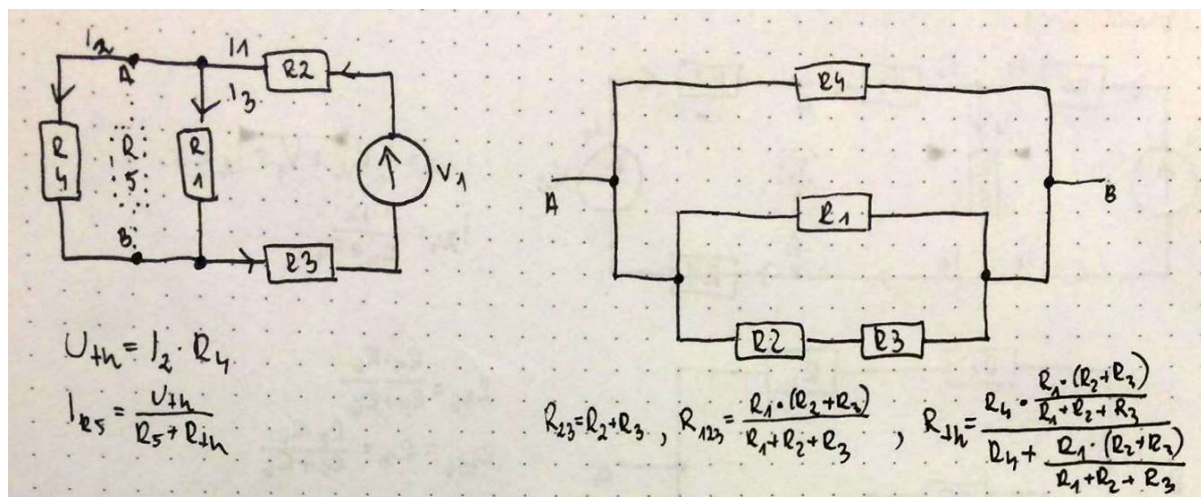 I2
A
I1
R2
I3
R4
R5
R1
V1
B
R3
Uth = I2 · R4
IR5 = Uth / (R5 + Rth)
R4
A
B
R1
R2
R3
R23 = R2 + R3 , R123 = R1 · (R2 + R3) / (R1 + R2 + R3) , Rth = (R4 · R1 · (R2 + R3) / (R1 + R2 + R3)) / (R4 + R1 · (R2 + R3) / (R1 + R2 + R3))